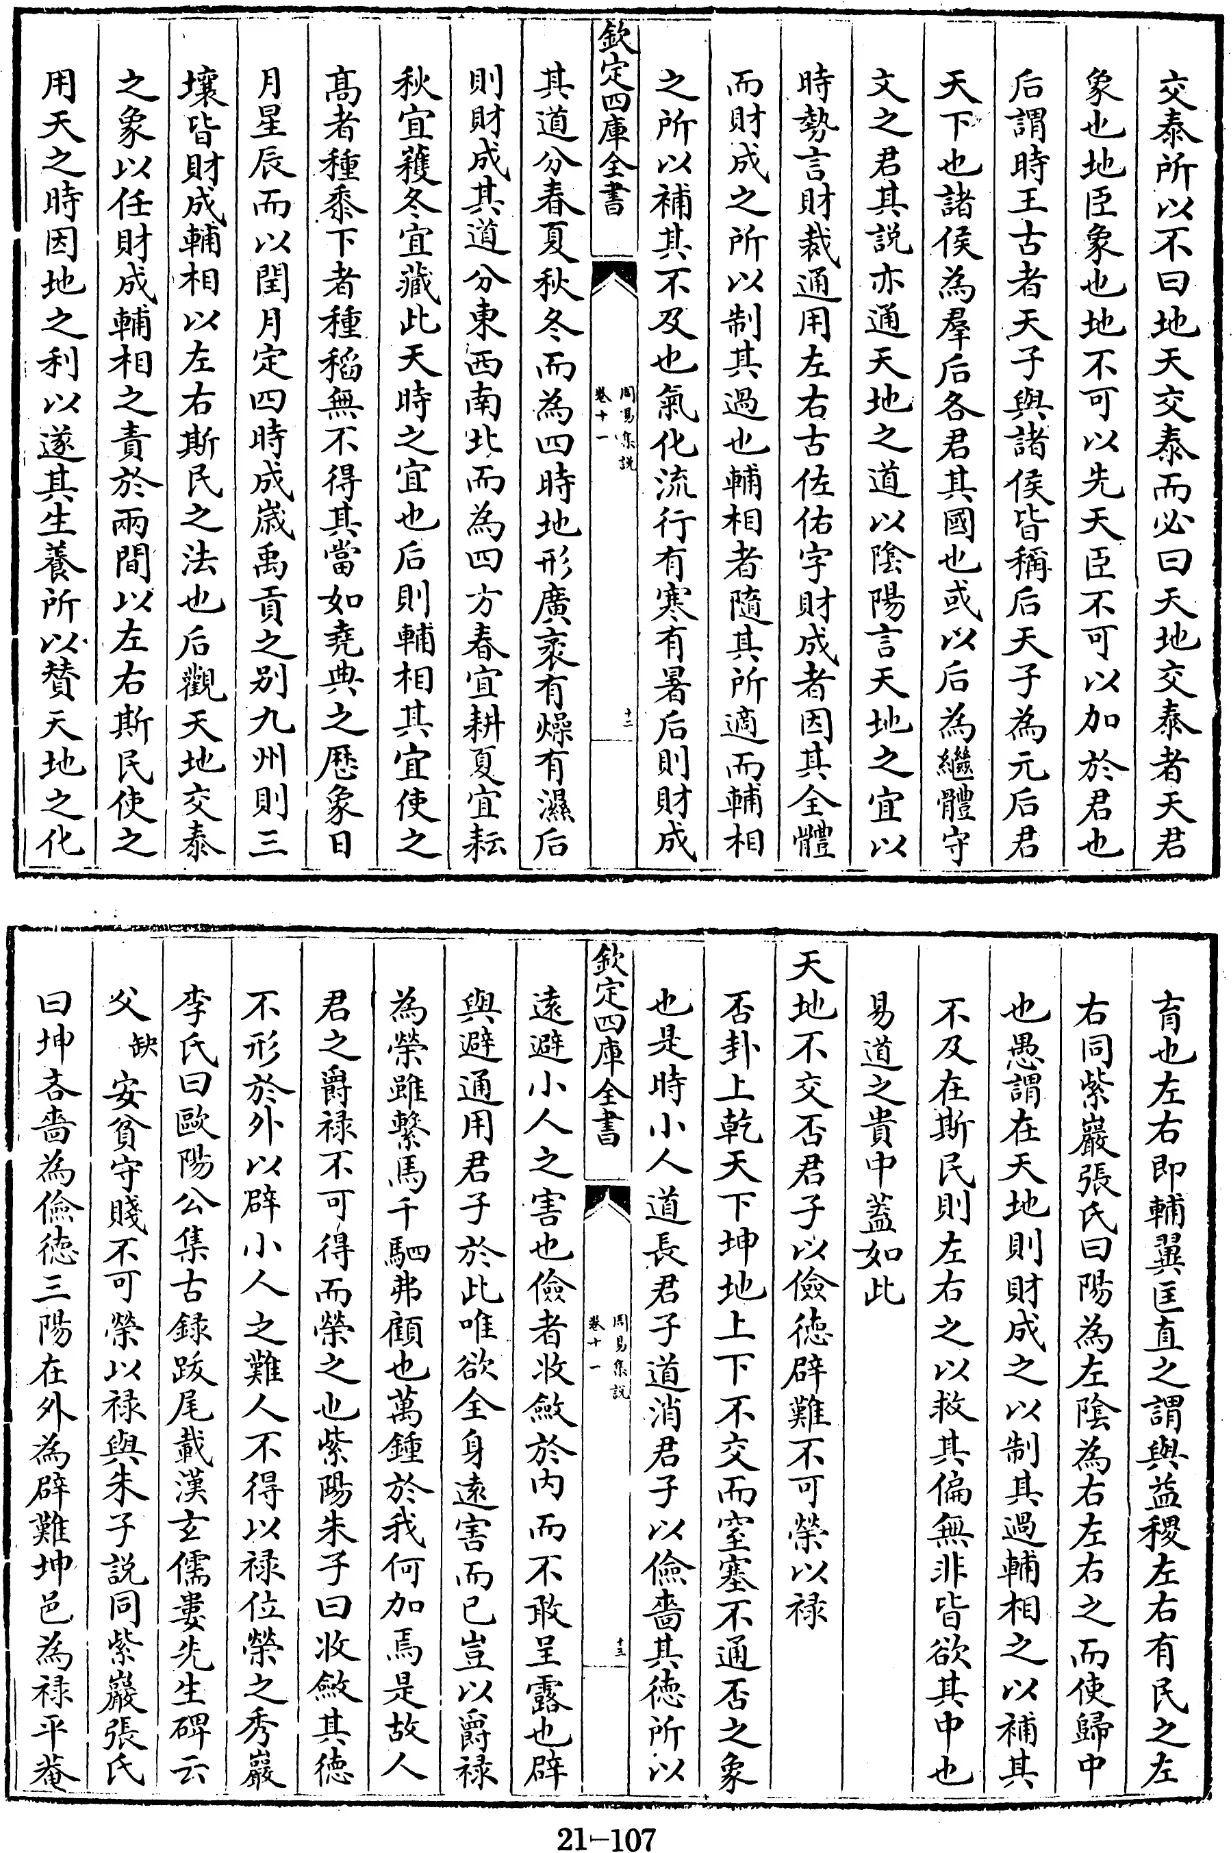 交泰所以不曰地天交泰而必曰天地交泰者天君
象也地臣象也地不可以先天臣不可以加於君也
后謂時王古者天子與諸侯皆稱后天子為元后君
天下也諸侯為羣后各君其國也或以后為繼體守
文之君其説亦通天地之道以陰陽言天地之宜以
時勢言財裁通用左右古佐佑字財成者因其全體
而財成之所以制其過也輔相者隨其所適而輔相
之所以補其不及也氣化流行有寒有暑后則財成
欽定四庫全書
周易集説
卷十一
十二
其道分春夏秋冬而為四時地形廣袤有燥有濕后
則財成其道分東西南北而為四方春宜耕夏宜耘
秋宜穫冬宜藏此天時之宜也后則輔相其宜使之
髙者種黍下者種稻無不得其當如堯典之厯象日
月星辰而以閏月定四時成嵗禹貢之别九州則三
壤皆財成輔相以左右斯民之法也后觀天地交泰
之象以任財成輔相之責於兩間以左右斯民使之
用天之時因地之利以遂其生養所以賛天地之化
育也左右即輔翼匡直之謂與益稷左右有民之左
右同紫巖張氏曰陽為左陰為右左右之而使歸中
也愚謂在天地則財成之以制其過輔相之以補其
不及在斯民則左右之以救其偏無非皆欲其中也
易道之貴中蓋如此
天地不交否君子以儉徳辟難不可榮以禄
否卦上乾天下坤地上下不交而窒塞不通否之象
也是時小人道長君子道消君子以儉嗇其徳所以
欽定四庫全書
周易集説
卷十一
十三
逺避小人之害也儉者收斂於内而不敢呈露也辟
與避通用君子於此唯欲全身逺害而已豈以爵禄
為榮雖繫馬千駟弗顧也萬鍾於我何加焉是故人
君之爵禄不可得而榮之也紫陽朱子曰收斂其徳
不形於外以辟小人之難人不得以禄位榮之秀巖
李氏曰歐陽公集古録跋尾載漢玄儒婁先生碑云
父 缺 安貧守賤不可榮以禄與朱子説同紫巖張氏
曰坤吝嗇為儉徳三陽在外為辟難坤邑為禄平菴
21-107